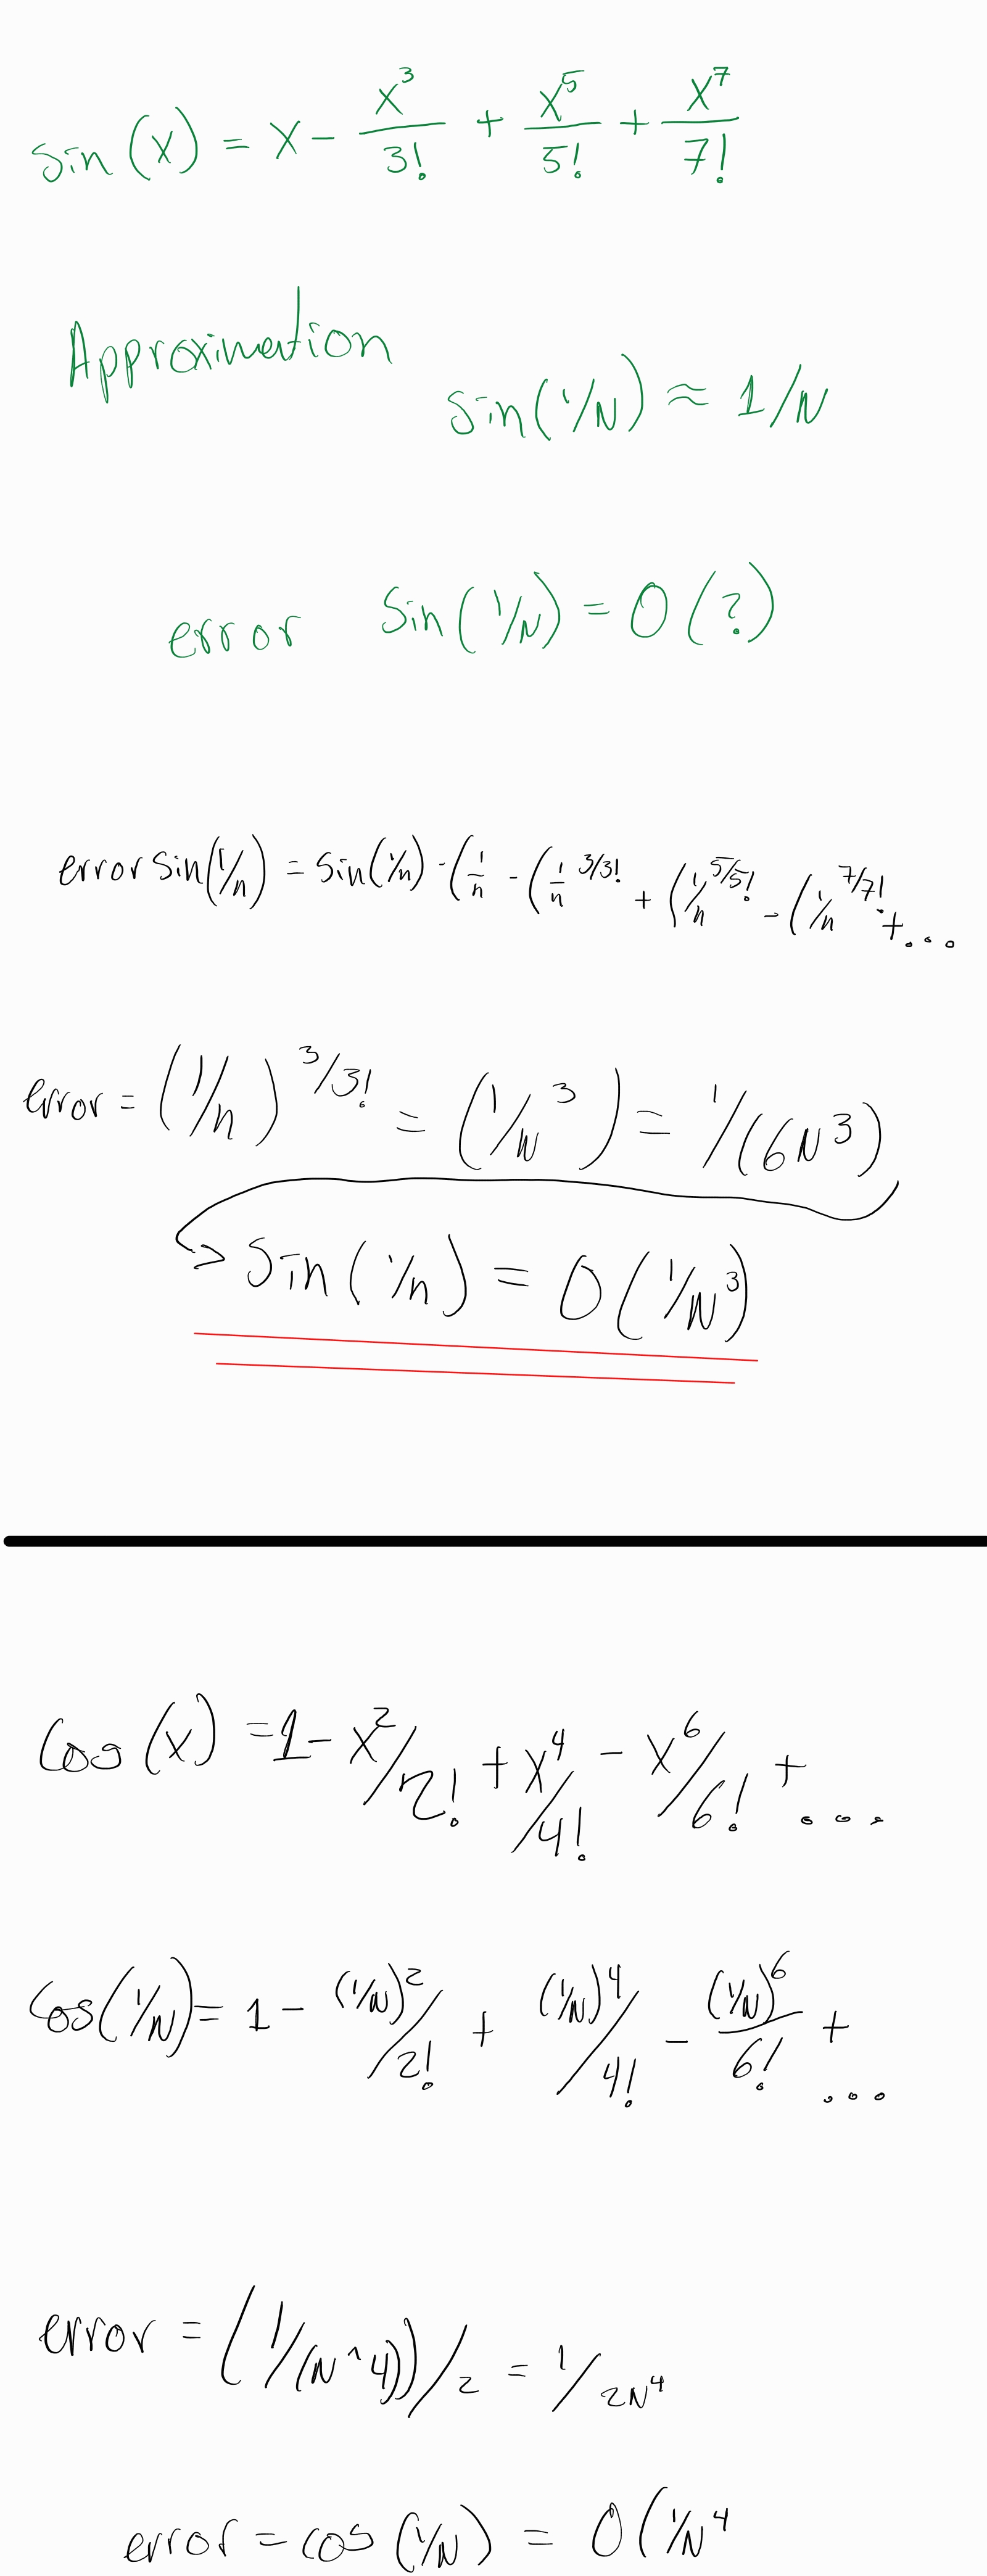 sin(x) = x - x³/3! + x⁵/5! + x⁷/7!
Approximation
sin(1/N) ≈ 1/N
error sin(1/N) = O(?)
error sin(1/n) = sin(1/n) - (1/n - (1/n ³/³! + (1/n ⁵/⁵! - (1/n ⁷/⁷! + ...
error = (1/n)³/³! = (1/N³) = 1/(6N³)
sin(1/n) = O(1/N³)
cos(x) = 1 - x²/2! + x⁴/4! - x⁶/6! + ...
cos(1/N) = 1 - (1/N)²/2! + (1/N)⁴/4! - (1/N)⁶/6! + ...
error = (1/(N^4))/2 = 1/2N⁴
error = cos(1/N) = O(1/N⁴